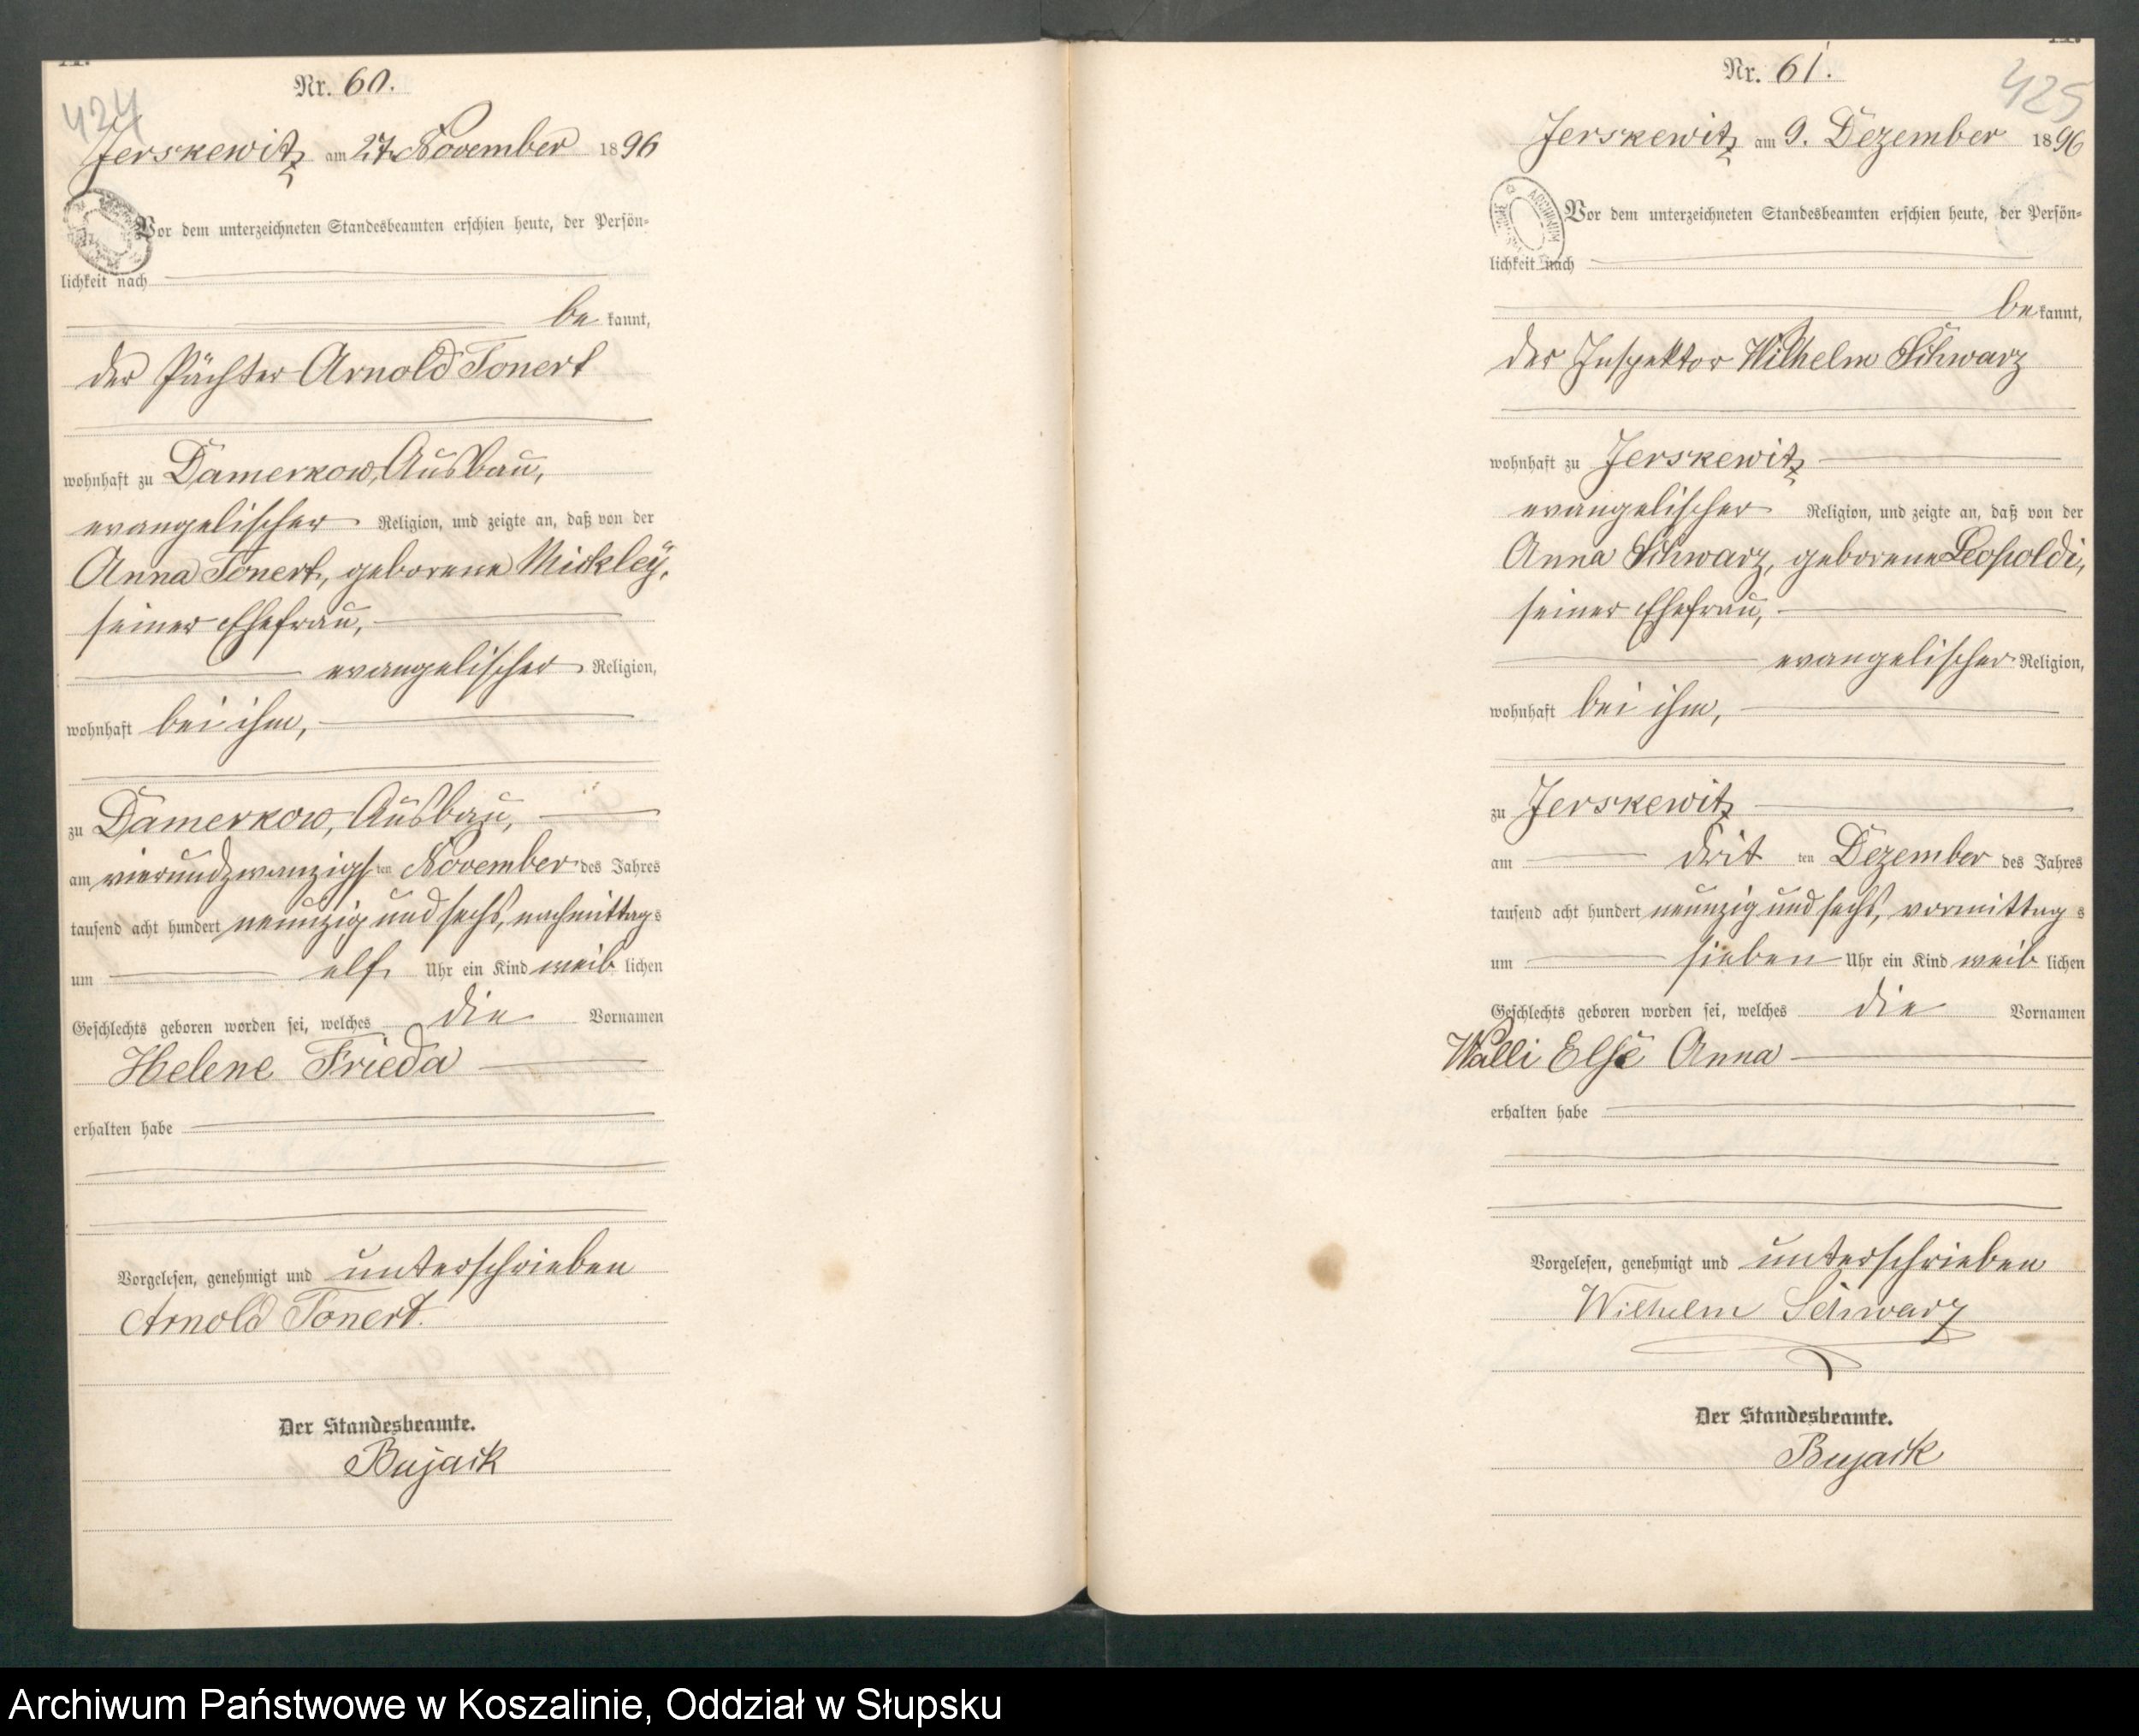 Nr. 60.
424
Jerskewitz am 27. November 1896
Vor dem unterzeichneten Standesbeamten erschien heute, der Persön-
lichkeit nach
be kannt,
der Pächter Arnold Tonert
wohnhaft zu Damerkow, Ausbau,
evangelischer Religion, und zeigte an, daß von der
Anna Tonert, geborene Mickley,
seiner Ehefrau,
evangelischer Religion,
wohnhaft bei ihm,
zu Damerkow, Ausbau,
am vierundzwanzigs ten November des Jahres
tausend acht hundert neunzig und sechs, nachmittag s
um elf Uhr ein Kind weib lichen
Geschlechts geboren worden sei, welches die Vornamen
Helene Frieda
erhalten habe
Vorgelesen, genehmigt und unterschrieben
Arnold Tonert.
Der Standesbeamte.
Bujack
Nr. 61.
425
Jerskewitz am 9. Dezember 1896
ARCHIWUM
Vor dem unterzeichneten Standesbeamten erschien heute, der Persön-
lichkeit nach
be kannt,
der Inspektor Wilhelm Schwarz
wohnhaft zu Jerskewitz
evangelischer Religion, und zeigte an, daß von der
Anna Schwarz, geborene Leopoldi,
seiner Ehefrau,
evangelischer Religion,
wohnhaft bei ihm,
zu Jerskewitz
am drit ten Dezember des Jahres
tausend acht hundert neunzig und sechs, vormittag s
um sieben Uhr ein Kind weib lichen
Geschlechts geboren worden sei, welches die Vornamen
Walli Else Anna
erhalten habe
Vorgelesen, genehmigt und unterschrieben
Wilhelm Schwarz
Der Standesbeamte.
Bujack
Archiwum Państwowe w Koszalinie, Oddział w Słupsku